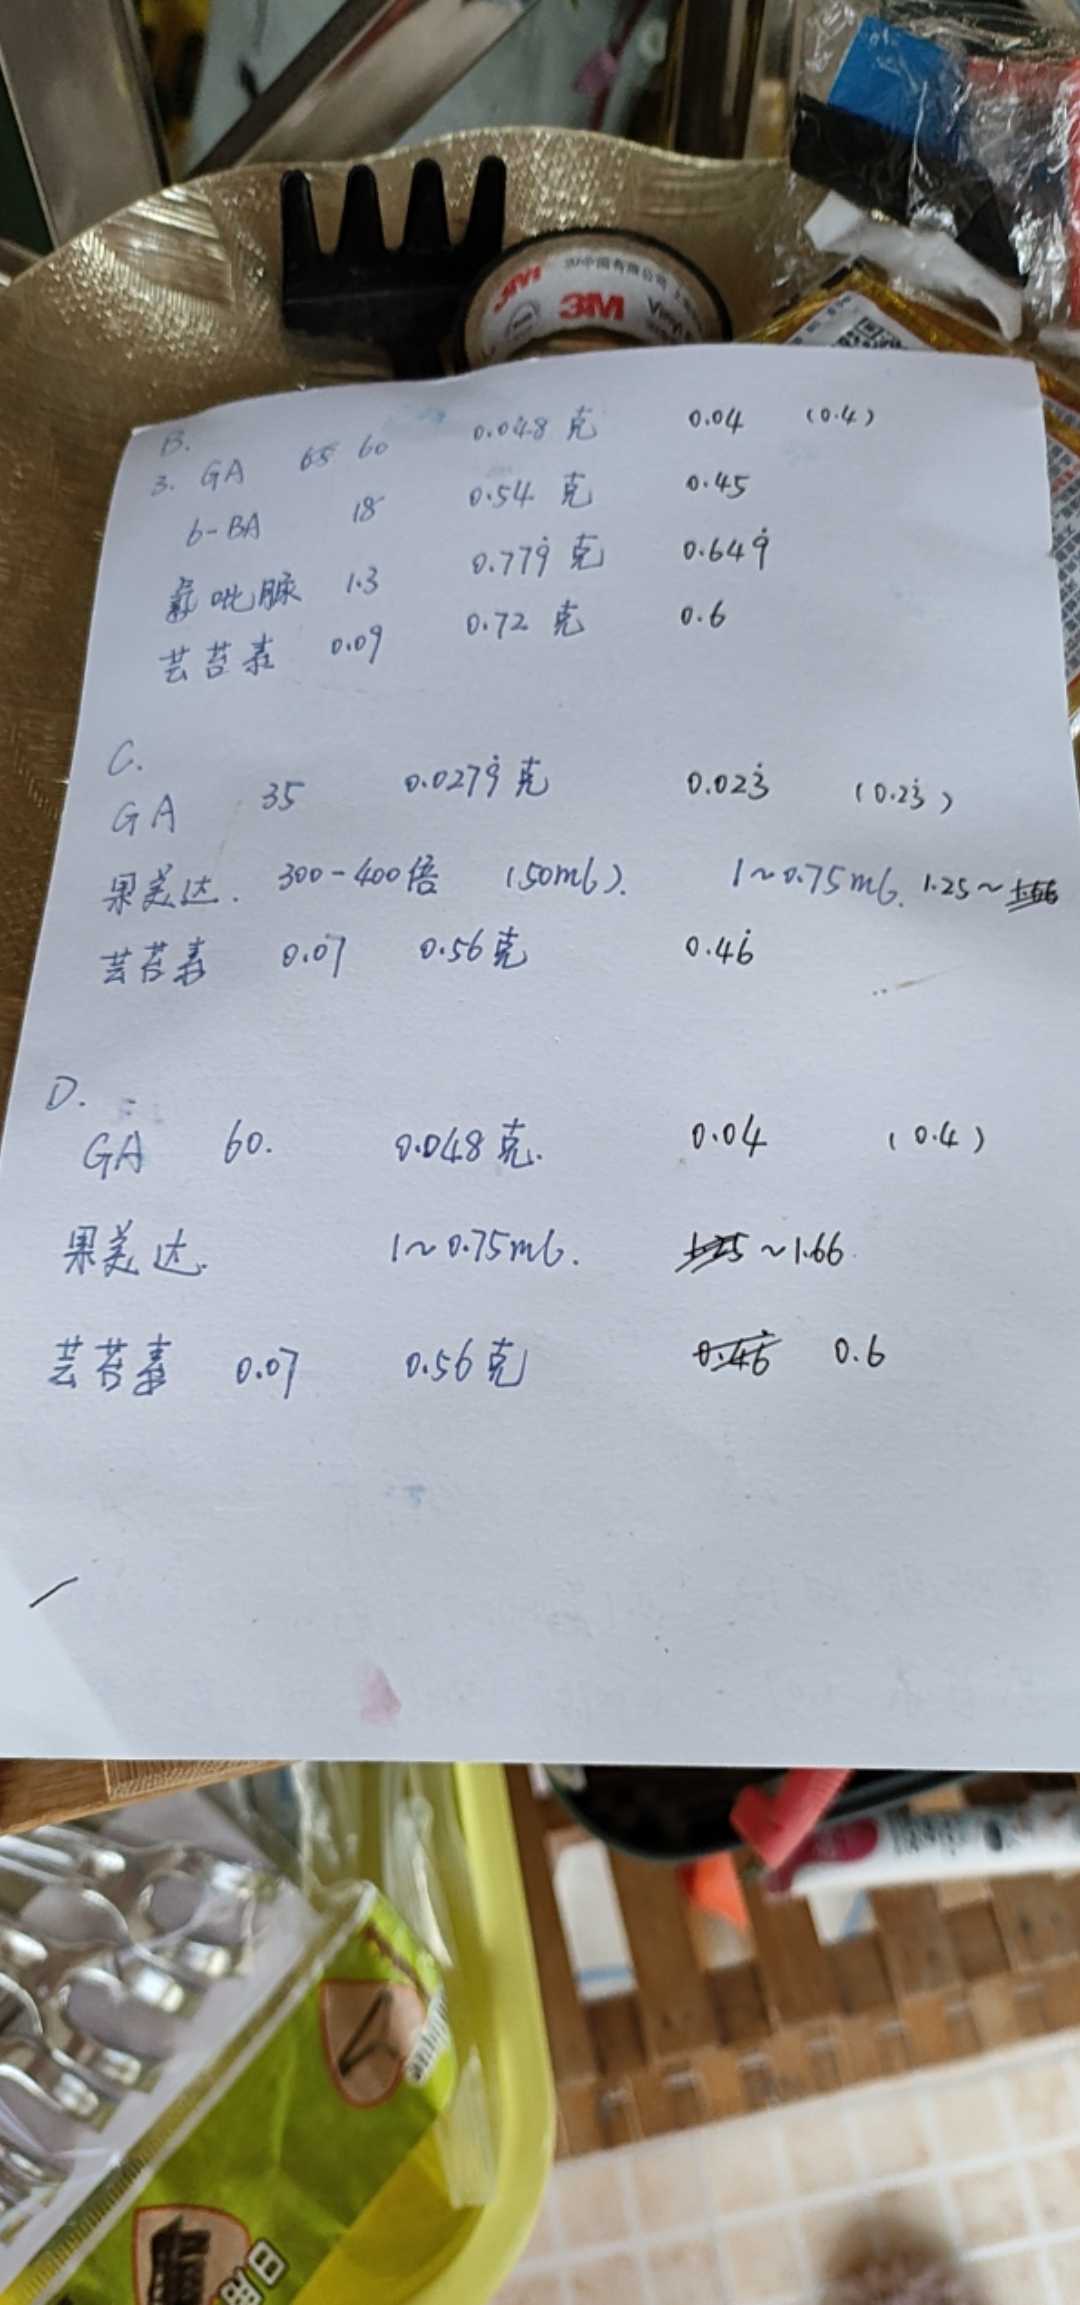 3M
3M
3M中国有限公司
Vinyl
B.
3. GA 65 60 0.048克 0.04 (0.4)
6-BA 18 0.54克 0.45
氯吡脲 1.3 0.779克 0.649
芸苔素 0.09 0.72克 0.6
C.
GA 35 0.0279克 0.023 (0.23)
果美达. 300-400倍 (50ml). 1~0.75ml. 1.25~1.66
芸苔素 0.07 0.56克 0.46
D.
GA 60. 0.048克. 0.04 (0.4)
果美达. 1~0.75ml. 1.25~1.66
芸苔素 0.07 0.56克 0.46 0.6